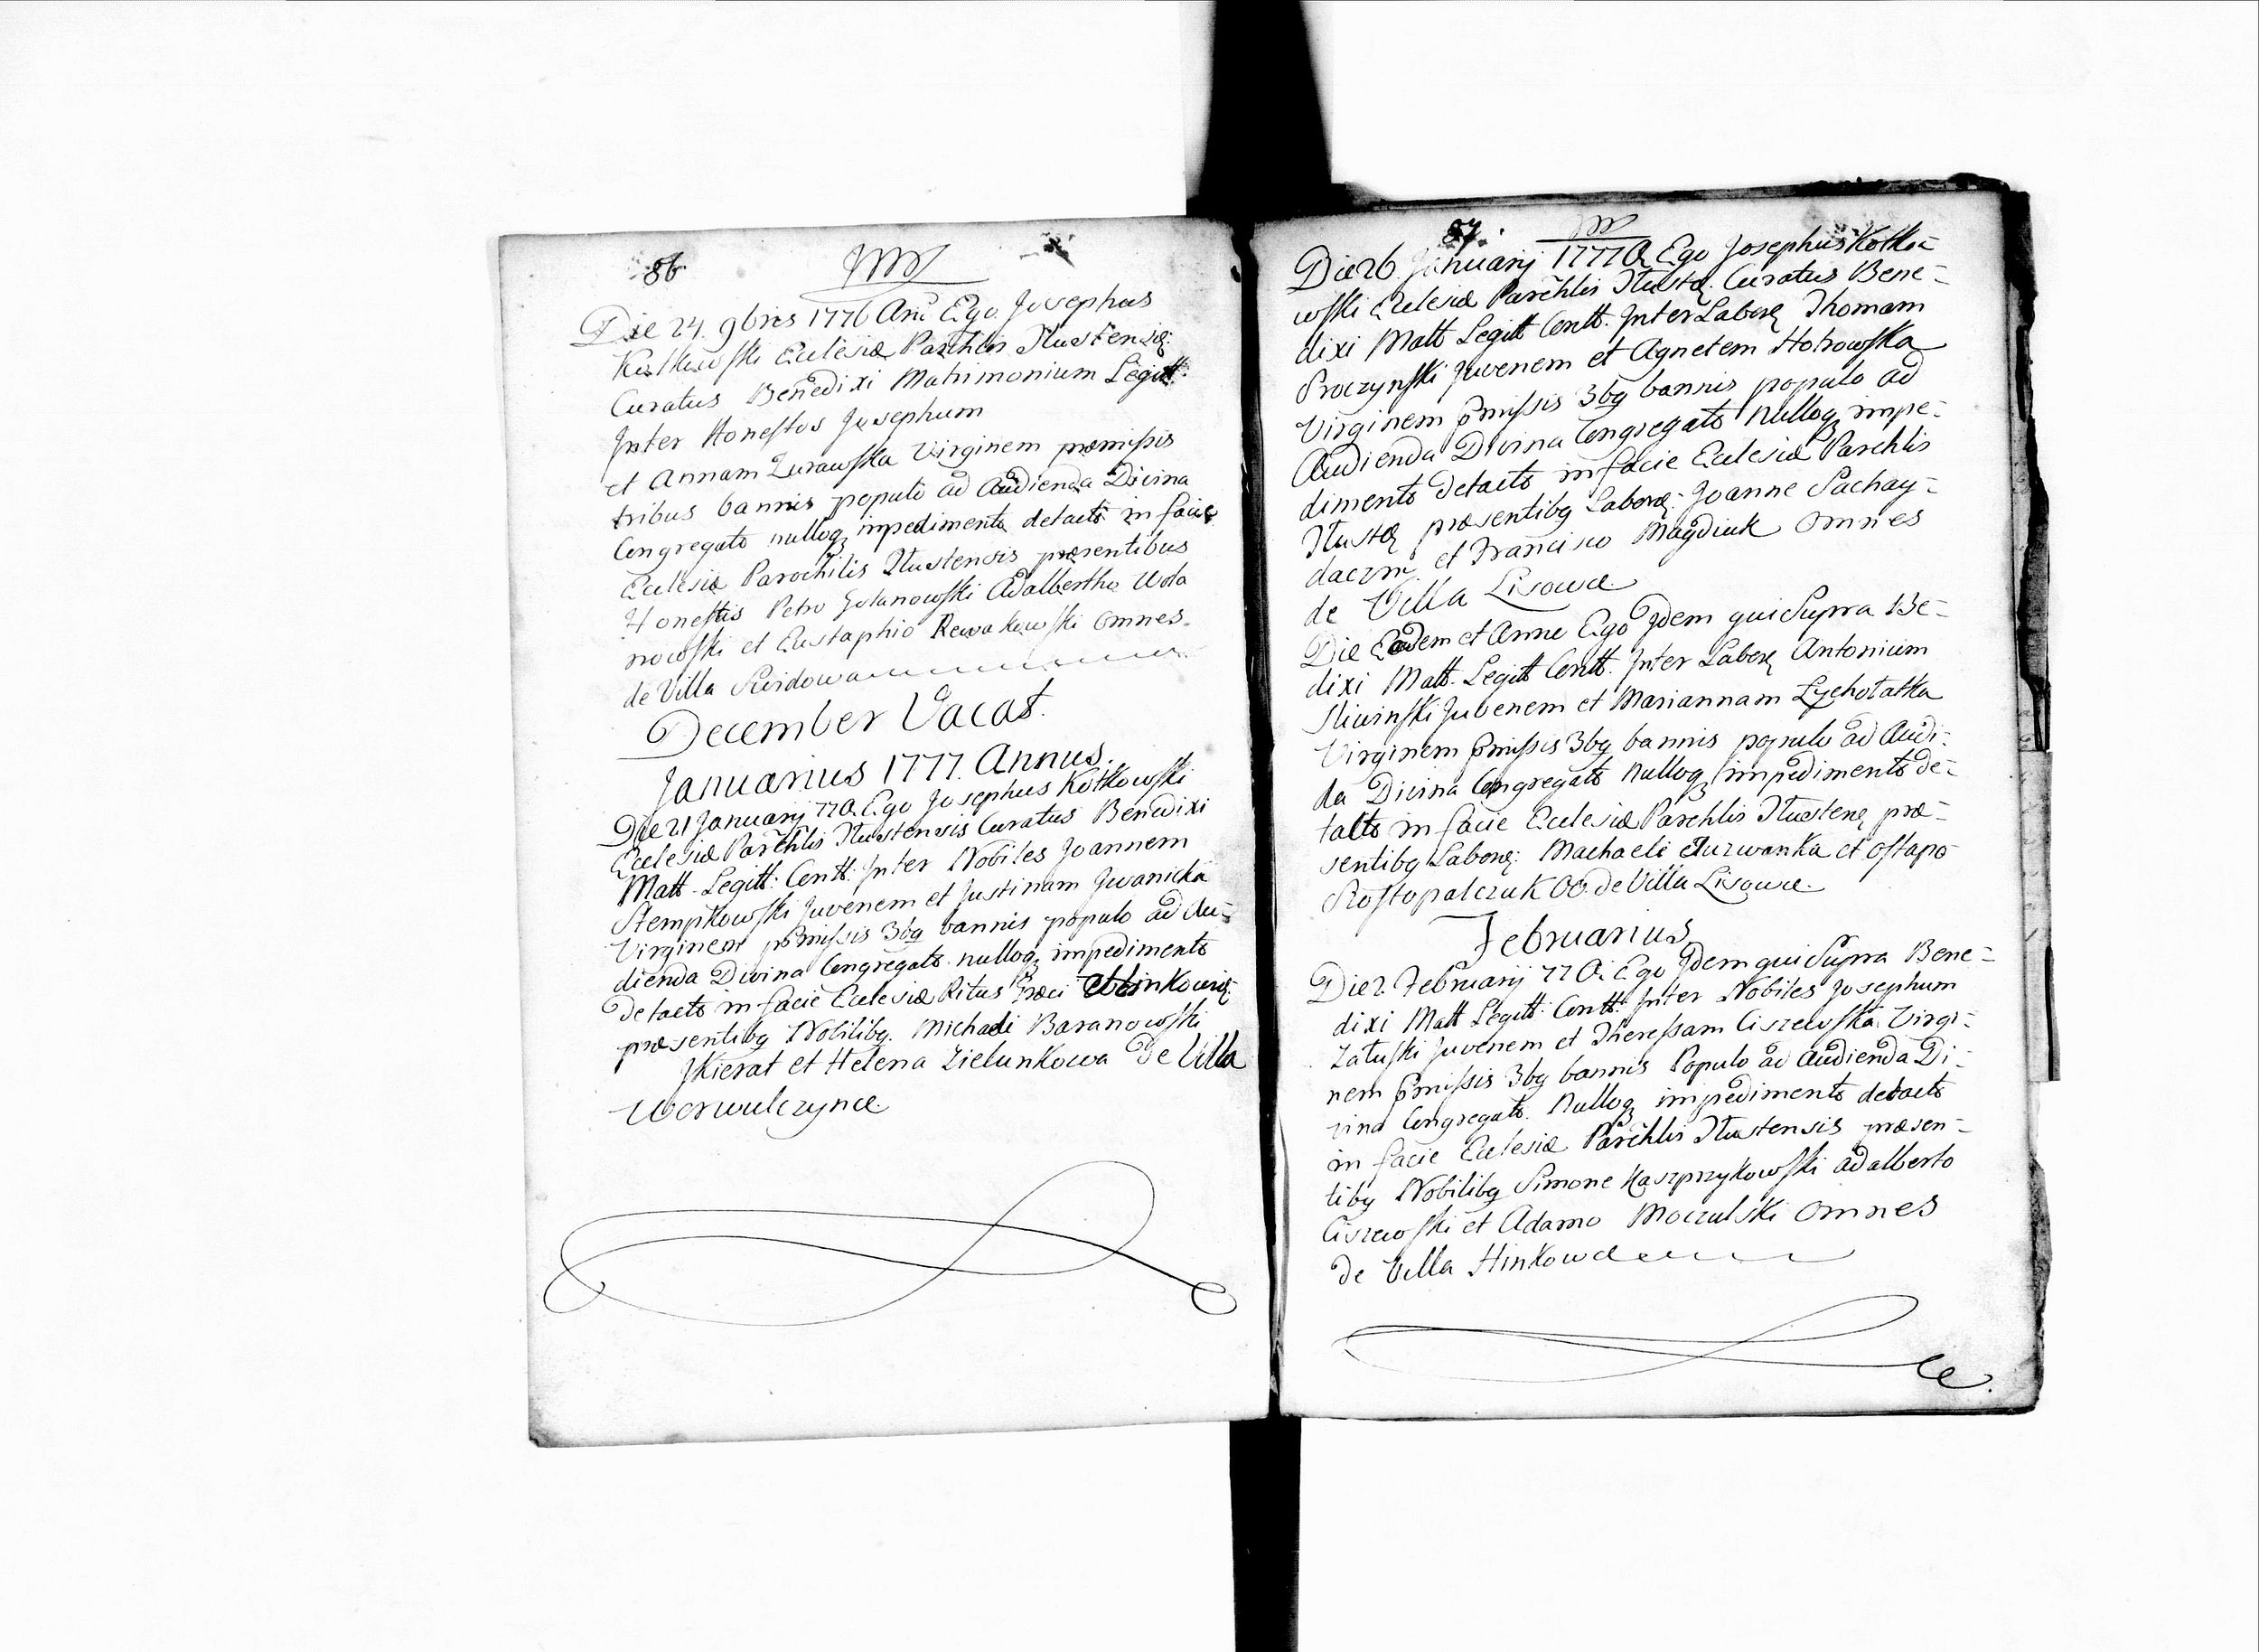 86
Die 24. 9bris 1776 Ani Ego Josephus
Kotkowski Eclesiæ Parchlis Tlustensis:
Curatus Benedixi Matrimonium Legitt:
Inter Honestos Josephum
et Annam Zurawska Virginem præmissis
tribus bannis populo ad Audienda Divina
Congregato nulloq impedimento detecto in facie
Eclesiæ Parochilis Tlustensis præsentibus
Honestis Petro Golanowski Adalbertho Wola
nowski et Eustaphio Rewakowski Omnes
de Villa Swidowa
December Vacat.
Januarius 1777. Annus.
Die 21 Januarij 77 A. Ego Josephus Kotkowski
Eclesiæ Parchlis Tlustensis Curatus Benedixi
Matt. Legitt: Contt: Inter Nobiles Joannem
Stempkowski Juvenem et Justinam Iwanicka
Virginem pmissis 3bg bannis populo ad Au-
dienda Divina Congregato nulloq impedimento
detecto in facie Eclesiæ Ritus Græci
præsentibg Nobilibg. Michaeli Baranowski
Skierat et Helena Zielunkowa de Villa
Worwulczynce
87.
Die 26 Januarij 1777 A Ego Josephus Kotko-
wski Eclesiæ Parchlis Tlustæ. Curatus Bene-
dixi Matt Legitt Contt. Inter Labors Thomam
Proczynski Juvenem et Agnetem Hotrowska
Virginem pmissis 3bg bannis populo ad
Audienda Divina Congregato Nulloq impe-
dimento detecto in facie Eclesiæ Parchlis
Tlustæ præsentibg Labors: Joanne Sachay-
daczny et Francisco Magdiuk Omnes
de Villa Lisowce
Die Eadem et Anno Ego Idem qui Supra Be-
dixi Matt. Legitt Contt. Inter Labors Antonium
Sliwinski Juvenem et Mariannam Lychotatka
Virginem pmissis 3bg bannis populo ad Audi-
da Divina Congregato Nulloq impedimento de-
tecto in facie Eclesiæ Parchlis Tlustens præ-
sentibg Labors: Machaeli Turwanka et Ostapo
Rostopalczuk OO. de Villa Lisowce.
Februarius
Die 2. Februarij 77 A: Ego Idem qui Supra Bene-
dixi Matt Legitt: Contt: Inter Nobiles Josephum
Zatuski Juvenem et Theressam Ciszewska Virgi-
nem pmissis 3bg bannis Populo ad Audienda Di-
vina Congregato. Nulloq impedimento detecto
in facie Eclesiæ Parchlis Tlustensis præsen-
tibg Nobilibg Simone Kaszprzykowski Adalberto
Ciszewski et Adamo Moczulski Omnes
de Villa Hinkowce